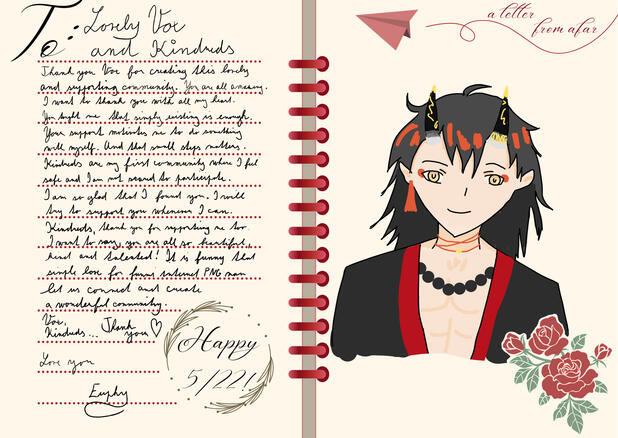 To:
Lovely Vox
and Kindreds
Thank you Vox for creating this lovely
and supporting community. You are all amazing.
I want to thank you with all my heart.
You taught me that simply existing is enough.
Your support motivates me to do something
with myself. And that small steps matters.
Kindreds are my first community where I feel
safe and I am not scared to participate.
I am so glad that I found you. I will
try to support you whenever I can.
Kindreds, thank you for supporting me too.
I want to say, you are all so beautiful,
kind and talented! It is funny that
simple love for funni internet PNG man
let us connect and create
a wonderful community.
Vox,
Kindreds... Thank
you ♡
Love you
Euphy
Happy
5/22!!
a letter
from afar